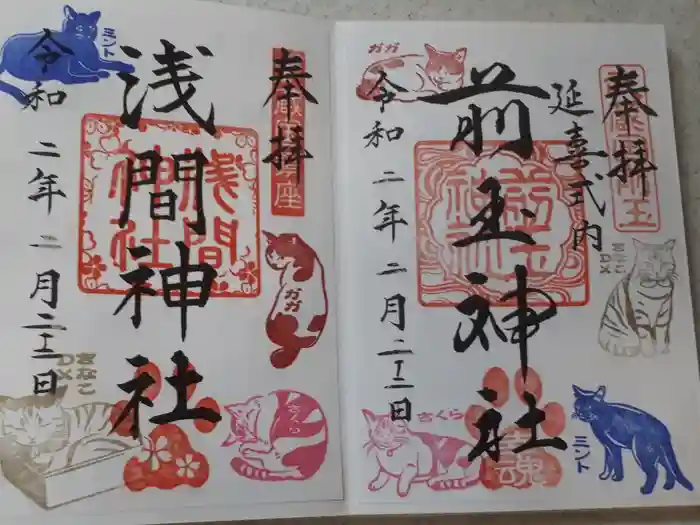 奉拝
延喜式内
前玉神社
令和二年二月二十二日
ガガ
きなこDX
さくら
ミント
奉拝
浅間神社
令和二年二月二十二日
ミント
ガガ
さくら
きなこDX
浅間神社